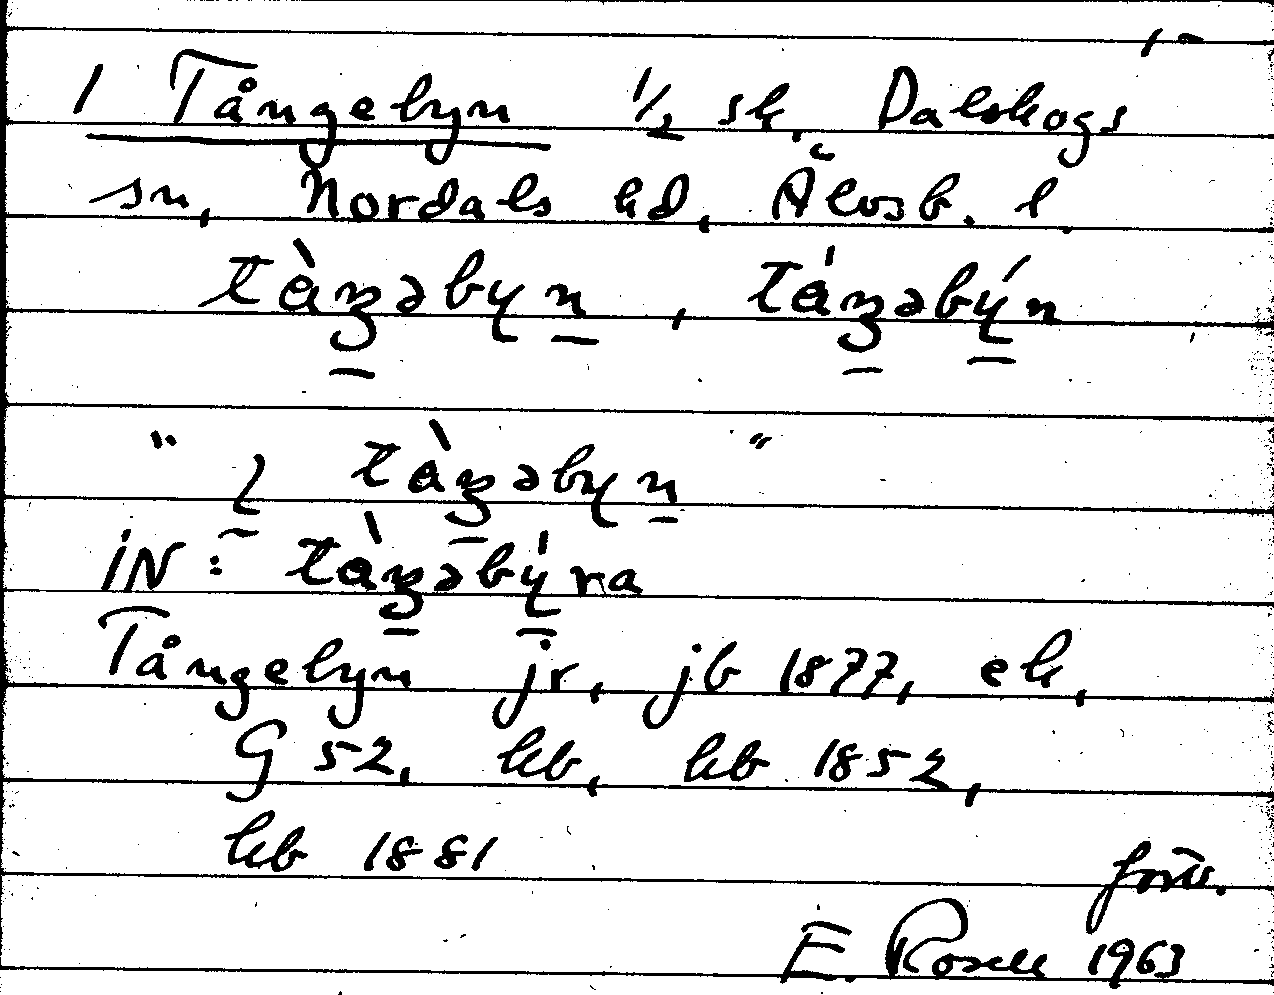 1-
1 Tångebyn 1/2 sk. Dalskogs
sn, Nordals hd, Älvsb. l.
tàŋəbyn, táŋəbýn
"ɩ tàŋəbyn"
iN: tàŋəbýra
Tångebyn jr, jb 1877, ek,
G 52, kb, kb 1852,
kb 1881
forts.
E. Rosell 1963